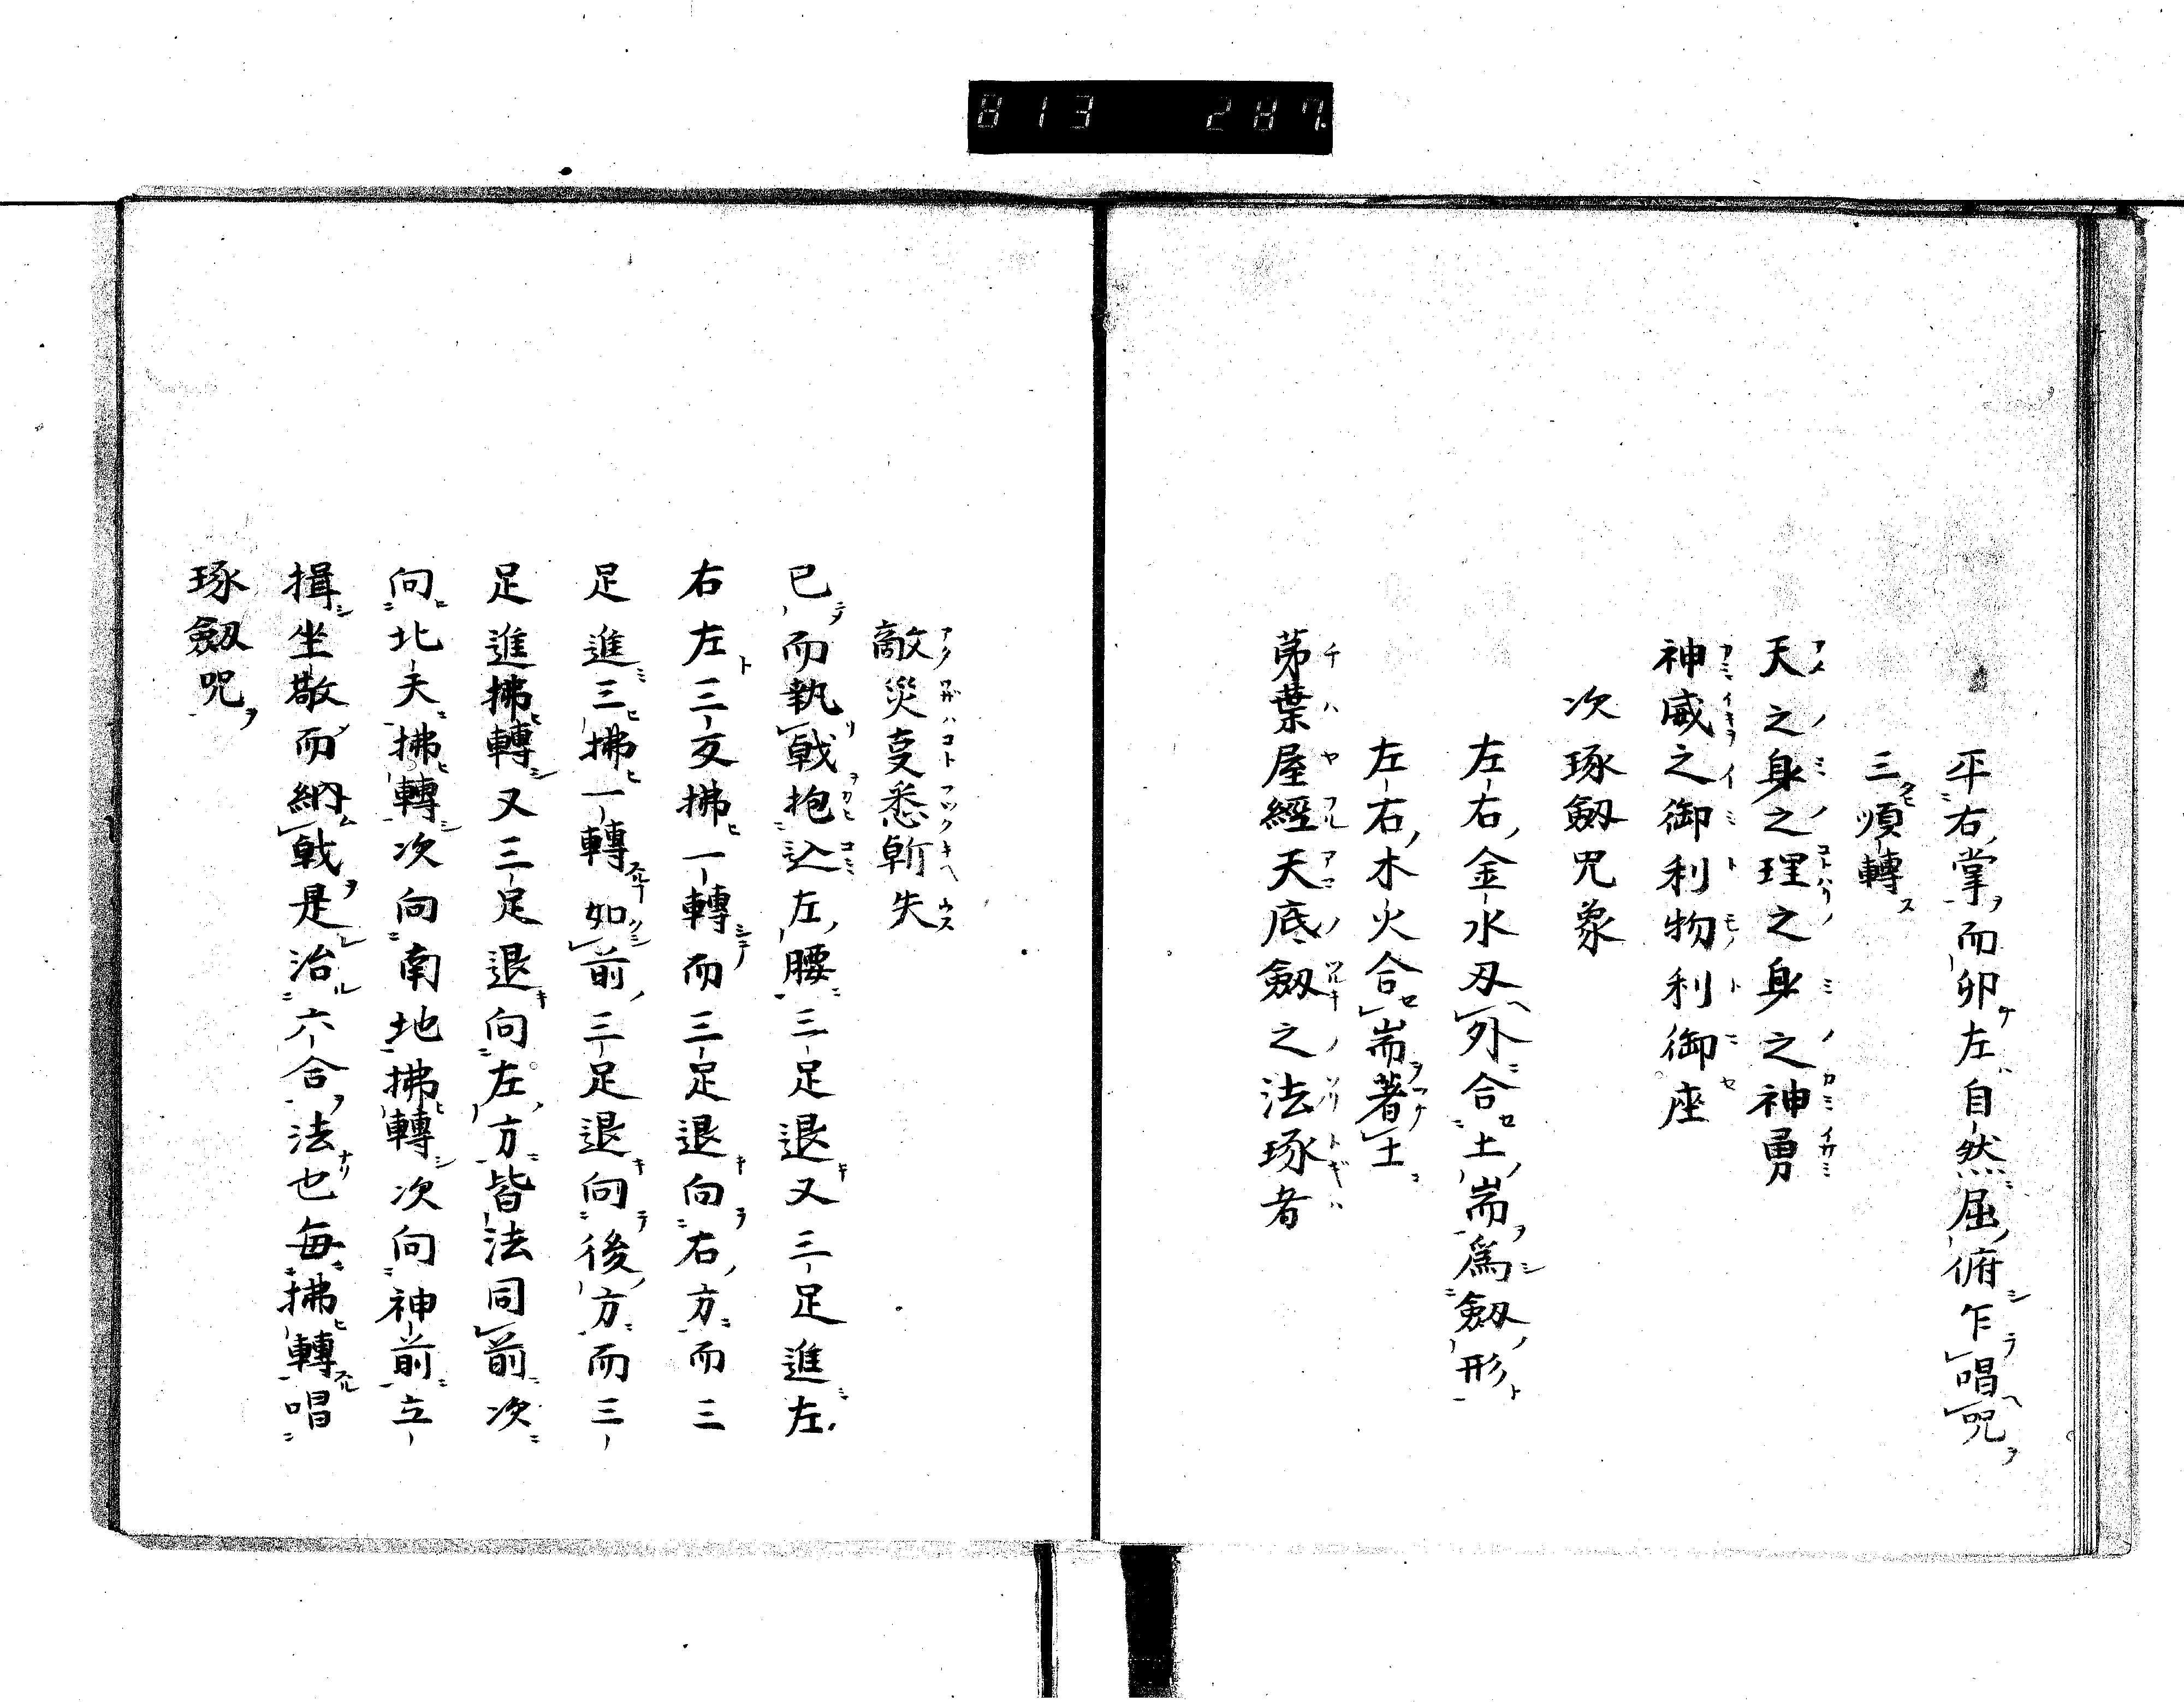 813 287
平右掌而卯左自然屈俯乍唱咒
三順轉
天之身之理之身之神勇
神威之御利物利御座
次琢劔咒象
左右金水刄外合土耑爲劔形
左右木火合耑著土
茅葉屋經天底劔之法琢者
敵災叓悉斬失
已而執戟抱込左腰三足退又三足進左
右左三交拂一轉而三足退向右方而三
足進三拂一轉如前三足退向後方而三
足進拂轉又三足退向左方皆法同前次
向北天拂轉次向南地拂轉次向神前立
揖坐敬而納戟是治六合法也每拂轉唱
琢劔咒